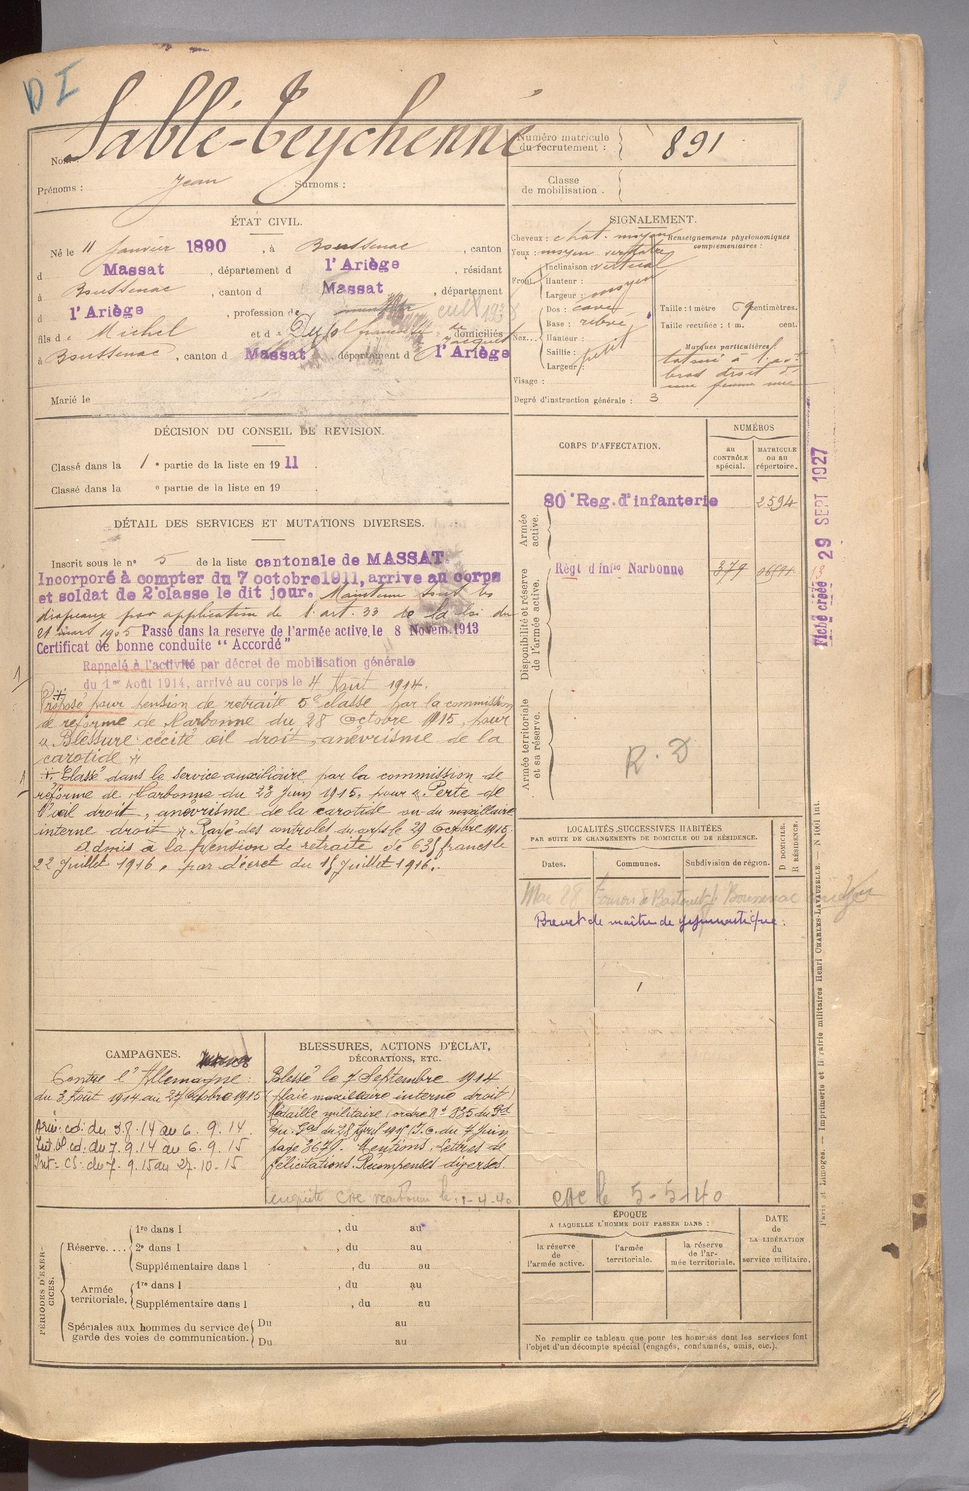 D I
Nom : Sablé-Teychenné
Numéro matricule du recrutement : 891
Prénoms : Jean Surnoms :
Classe de mobilisation .
ÉTAT CIVIL.
Né le 11 Janvier 1890 , à Boussenac , canton
d Massat , département d l'Ariège , résidant
à Boussenac , canton d Massat , département
d l'Ariège , profession de cult 1938
fils de Michel et d domiciliés
à Boussenac , canton d Massat , département d l'Ariège
Marié le
SIGNALEMENT.
Cheveux : chat. moyen Renseignements physionomiques complémentaires :
Yeux : moyen
Front Inclinaison vertical
Hauteur :
Largeur : moyen
Nez Dos : cave
Base : relevé
Hauteur :
Saillie :
Largeur : petit
Visage :
Taille : 1 mètre centimètres.
Taille rectifiée : 1 m. cent.
Marques particulières :
tatoué à l'avt
bras droit d'
une femme nue
Degré d'instruction générale : 3
DÉCISION DU CONSEIL DE REVISION.
Classé dans la 1e partie de la liste en 1911 .
Classé dans la e partie de la liste en 19 .
DÉTAIL DES SERVICES ET MUTATIONS DIVERSES.
Inscrit sous le n° 5 de la liste cantonale de MASSAT.
Incorporé à compter du 7 octobre 1911, arrive au corps
et soldat de 2e classe le dit jour. Maintenu sous les
drapeaux par application de l'art. 33 de la loi du
21 mars 1905 Passé dans la reserve de l'armée active, le 8 Novem. 1913
Certificat de bonne conduite "Accordé"
Rappelé à l'activité par décret de mobilisation générale
du 1er Août 1914, arrivé au corps le 4 Août 1914.
Proposé pour pension de retraite 5e classe par la commission
de réforme de Narbonne du 28 Octobre 1915, pour
" Blessure cécité œil droit, anévrisme de la
carotide "
Classé dans le service auxiliaire par la commission de
réforme de Narbonne du 23 Juin 1915, pour " Perte de
l'œil droit, anévrisme de la carotide ou du maxillaire
interne droit " Rayé des contrôles du corps le 29 Octobre 1915.
Admis à la pension de retraite de francs le
22 Juillet 1916, par décret du 15 Juillet 1916.
CORPS D'AFFECTATION.
NUMÉROS
au CONTRÔLE spécial.
MATRICULE ou au répertoire.
Armée active.
80e Reg. d'infanterie 2594
Disponibilité et réserve de l'armée active.
Régt d'infie Narbonne 379
Armée territoriale et sa réserve.
R. D
Fiche créée 29 SEPT 1927
LOCALITÉS SUCCESSIVES HABITÉES
PAR SUITE DE CHANGEMENTS DE DOMICILE OU DE RÉSIDENCE.
Dates. Communes. Subdivision de région. D DOMICILE. R RÉSIDENCE.
Mai 28 Boussenac
Brevet de maître de gymnastique.
CAMPAGNES.
Contre l'Allemagne :
du 3 Août 1914 au 27 Octobre 1915
du 3.8.14 au 6.9.14
du 7.9.14 au 6.9.15
du 7.9.15 au 27.10.15
BLESSURES, ACTIONS D'ÉCLAT, DÉCORATIONS, ETC.
Blessé le 7 Septembre 1914
(plaie maxillaire interne droit)
Médaille militaire (ordre N° 835 du Gd
Qu. Gal du 28 Avril 1915) J.O. du 7 Juin
page 3679. Mentions, lettres de
félicitations, Récompenses diverses.
enquête cre narbonne le -4-40
cre le 5-5-40
PÉRIODES D'EXERCICES.
Réserve.... 1re dans l , du au
2e dans l , du au
Supplémentaire dans l , du au
Armée territoriale. 1re dans l , du au
Supplémentaire dans l , du au
Spéciales aux hommes du service de garde des voies de communication. Du au
Du au
ÉPOQUE
A LAQUELLE L'HOMME DOIT PASSER DANS :
la réserve de l'armée active.
l'armée territoriale.
la réserve de l'armée territoriale.
DATE de LA LIBÉRATION du service militaire.
Ne remplir ce tableau que pour les hommes dont les services font
l'objet d'un décompte spécial (engagés, condamnés, omis, etc.).
Paris et Limoges. — Imprimerie et librairie militaires Henri CHARLES-LAVAUZELLE. — N° 1001 int.